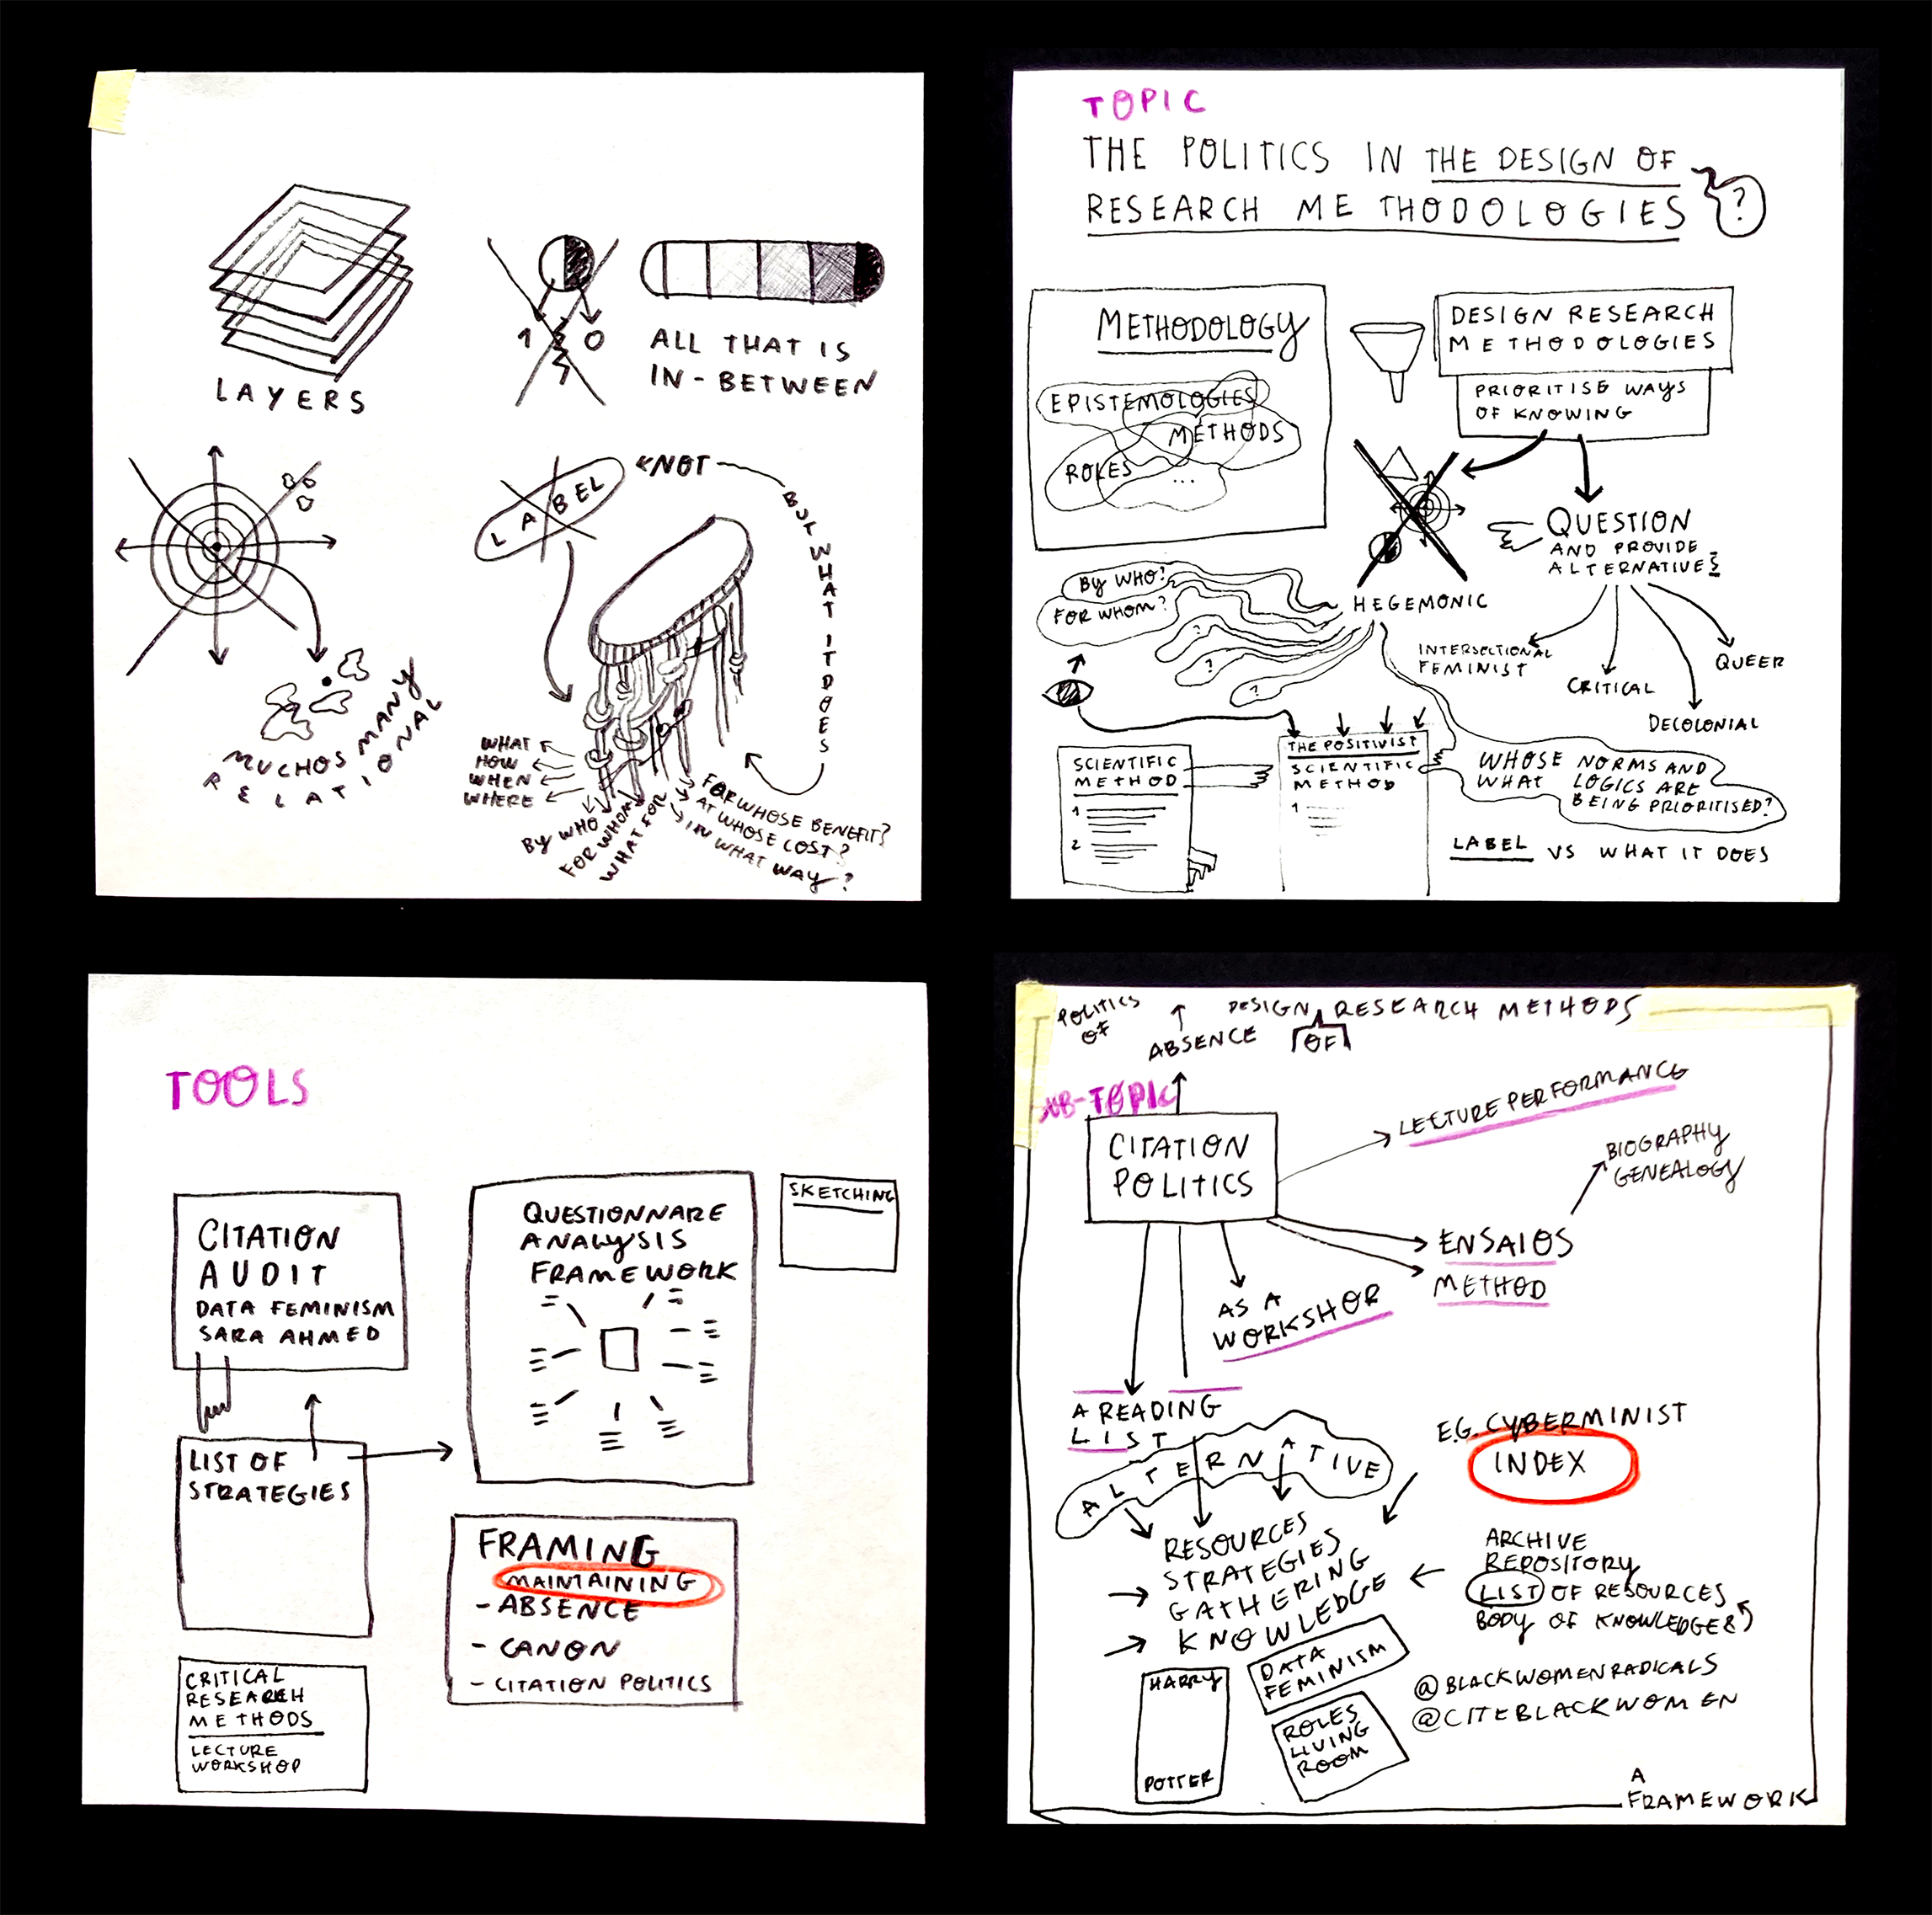 LAYERS
1 0
ALL THAT IS
IN-BETWEEN
MUCHOS MANY
RELATIONAL
LABEL
NOT
BUT WHAT IT DOES
WHAT
HOW
WHEN
WHERE
BY WHO
FOR WHOM
WHAT FOR
FOR WHOSE BENEFIT?
AT WHOSE COST?
IN WHAT WAY?
TOPIC
THE POLITICS IN THE DESIGN OF
RESEARCH METHODOLOGIES
?
METHODOLOGY
EPISTEMOLOGIES
METHODS
ROLES
...
DESIGN RESEARCH
METHODOLOGIES
PRIORITISE WAYS
OF KNOWING
QUESTION
AND PROVIDE
ALTERNATIVES
BY WHO?
FOR WHOM?
?
?
?
HEGEMONIC
INTERSECTIONAL
FEMINIST
CRITICAL
DECOLONIAL
QUEER
SCIENTIFIC
METHOD
1
2
THE POSITIVIST
SCIENTIFIC
METHOD
1
WHOSE NORMS AND
WHAT LOGICS ARE
BEING PRIORITISED?
LABEL VS WHAT IT DOES
TOOLS
CITATION
AUDIT
DATA FEMINISM
SARA AHMED
QUESTIONNARE
ANALYSIS
FRAMEWORK
SKETCHING
LIST OF
STRATEGIES
FRAMING
MAINTAINING
- ABSENCE
- CANON
- CITATION POLITICS
CRITICAL
RESEARCH
METHODS
LECTURE
WORKSHOP
POLITICS
OF
ABSENCE
DESIGN RESEARCH METHODS
OF
SUB-TOPIC
CITATION
POLITICS
LECTURE PERFORMANCE
BIOGRAPHY
GENEALOGY
ENSAIOS
METHOD
AS A
WORKSHOP
A READING
LIST
ALTERNATIVE
E.G. CYBERMINIST
INDEX
RESOURCES
STRATEGIES
GATHERING
KNOWLEDGE
ARCHIVE
REPOSITORY
LIST OF RESOURCES
BODY OF KNOWLEDGE(S)
HARRY
POTTER
DATA
FEMINISM
ROLES
LIVING
ROOM
@BLACKWOMENRADICALS
@CITEBLACKWOMEN
A
FRAMEWORK